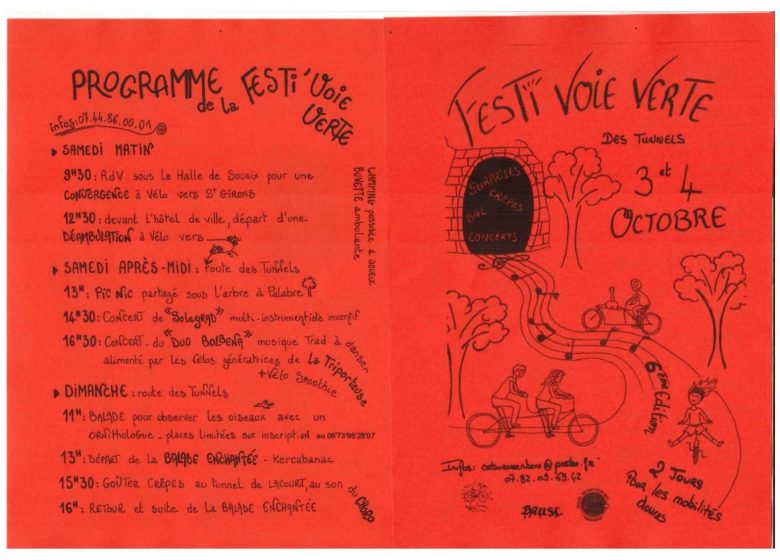 PROGRAMME
de la FESTI'VOIE
VERTE
infos: 07.44.86.00.01
SAMEDI MATIN
9H30: RdV sous la Halle de Soueix pour une
CONVERGENCE à Vélo vers St GIRONS
12H30: devant l'hôtel de ville, départ d'une
DÉAMBULATION à Vélo vers
SAMEDI APRÈS-MIDI: route des Tunnels
13H: PIC NIC partagé sous l'arbre à Palabre
14H30: CONCERT de "SOLEGRAD" multi-instrumentiste inventif
16H30: CONCERT du "DUO BOLBENA" musique Trad à danser
alimenté par les vélos génératrices de la Triporteuse
+Vélo Smoothie
DIMANCHE: route des Tunnels
11H: BALADE pour observer les oiseaux avec un
ORNITHOLOGUE - places limitées sur inscription au 0673952807
13H: DÉPART de la BALADE ENCHANTÉE - Kercabanac
15H30: GOÛTER CRÊPES au tunnel de LACOURT, au son du CHORO
16H: RETOUR et suite de la BALADE ENCHANTÉE
CAMPING possible à
BUVETTE ambulante
FESTI VOIE VERTE
DES TUNNELS
3 et 4
OCTOBRE
SURPRISES
CRÊPES
BAL
CONCERTS
6ème Edition
2 JOURS
Pour les mobilités
douces
Infos:
07.82.09.69.42